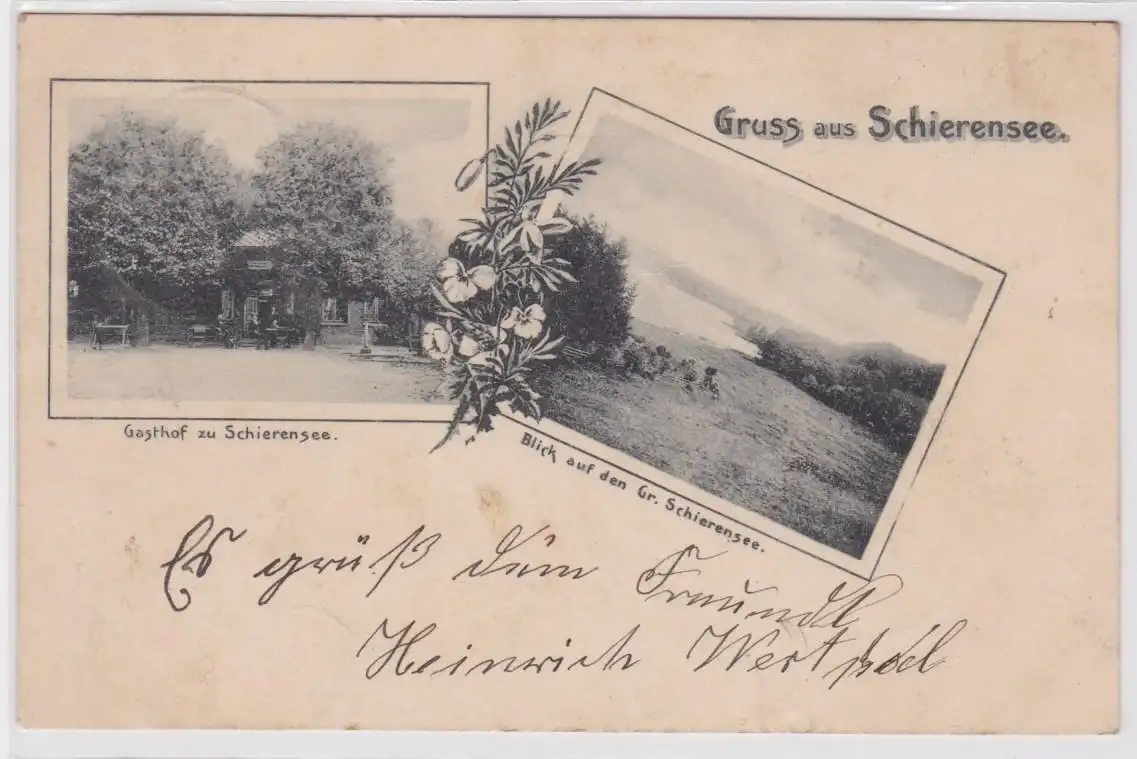 Gruss aus Schierensee.
Gasthof zu Schierensee.
Blick auf den Gr. Schierensee.
Es grüß dein
Freund
Heinrich